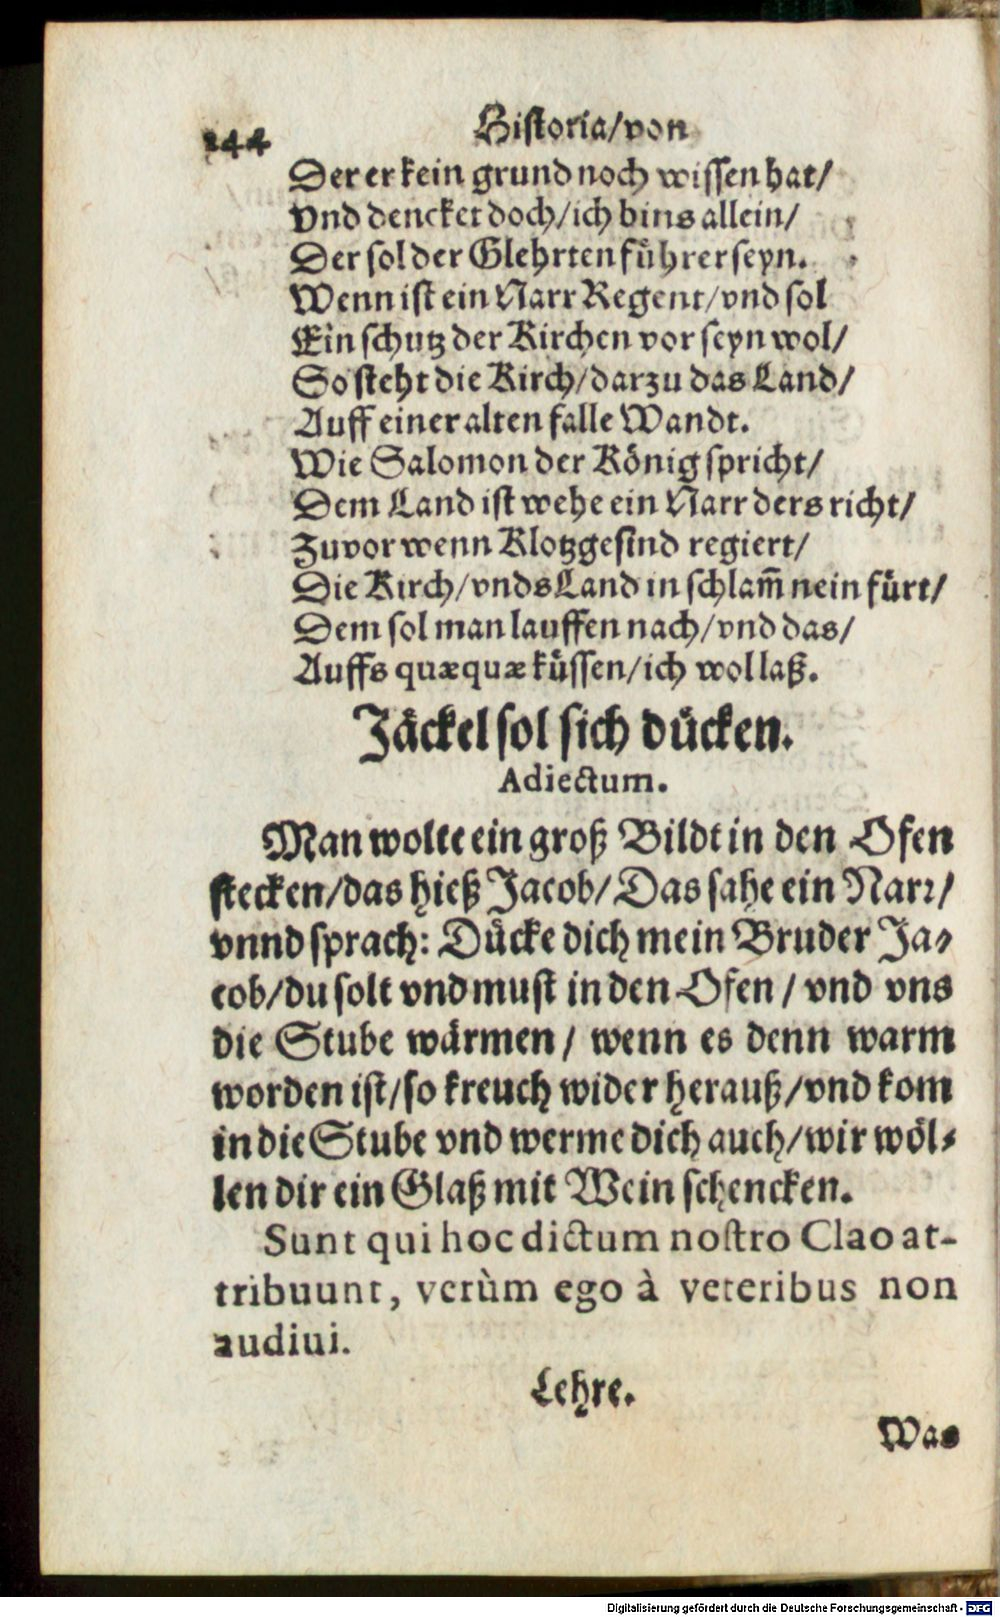 244
Historia/von
Der er kein grund noch wissen hat/
Vnd dencket doch/ich bins allein/
Der sol der Glehrten fuͤhrer seyn.
Wenn ist ein Narr Regent/vnd sol
Ein schutz der Kirchen vor seyn wol/
So steht die Kirch/darzu das Land/
Auff einer alten falle Wandt.
Wie Salomon der Koͤnig spricht/
Dem Land ist wehe ein Narr ders richt/
Zuvor wenn Klotzgesind regiert/
Die Kirch/vnds Land in schlam̃ nein fuͤrt/
Dem sol man lauffen nach/vnd das/
Auffs quæquæ kuͤssen/ich wol laß.
Jaͤckel sol sich duͤcken.
Adiectum.
Man wolte ein groß Bildt in den Ofen
stecken/das hieß Jacob/Das sahe ein Narr/
vnnd sprach: Duͤcke dich mein Bruder Ja-
cob/du solt vnd must in den Ofen/vnd vns
die Stube waͤrmen/ wenn es denn warm
worden ist/so kreuch wider herauß/vnd kom
in die Stube vnd werme dich auch/wir woͤl-
len dir ein Glaß mit Wein schencken.
Sunt qui hoc dictum nostro Clao at-
tribuunt, verùm ego à veteribus non
audiui.
Lehre.
Was
Digitalisierung gefördert durch die Deutsche Forschungsgemeinschaft - DFG